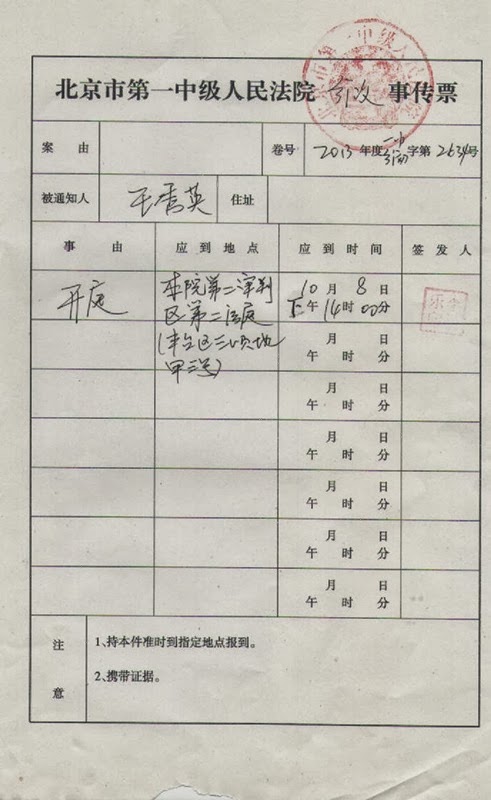 北京市第一中级人民法院 行政 事传票
案由 卷号 2013年度一中行初字第2634号
被通知人 王秀英 住址
事由 应到地点 应到时间 签发人
开庭 本院第二审判区第二法庭(丰台区三顷地甲三号) 10月8日
下午14时00分
月 日
午 时 分
月 日
午 时 分
月 日
午 时 分
月 日
午 时 分
月 日
午 时 分
月 日
午 时 分
注意
1、持本件准时到指定地点报到。
2、携带证据。